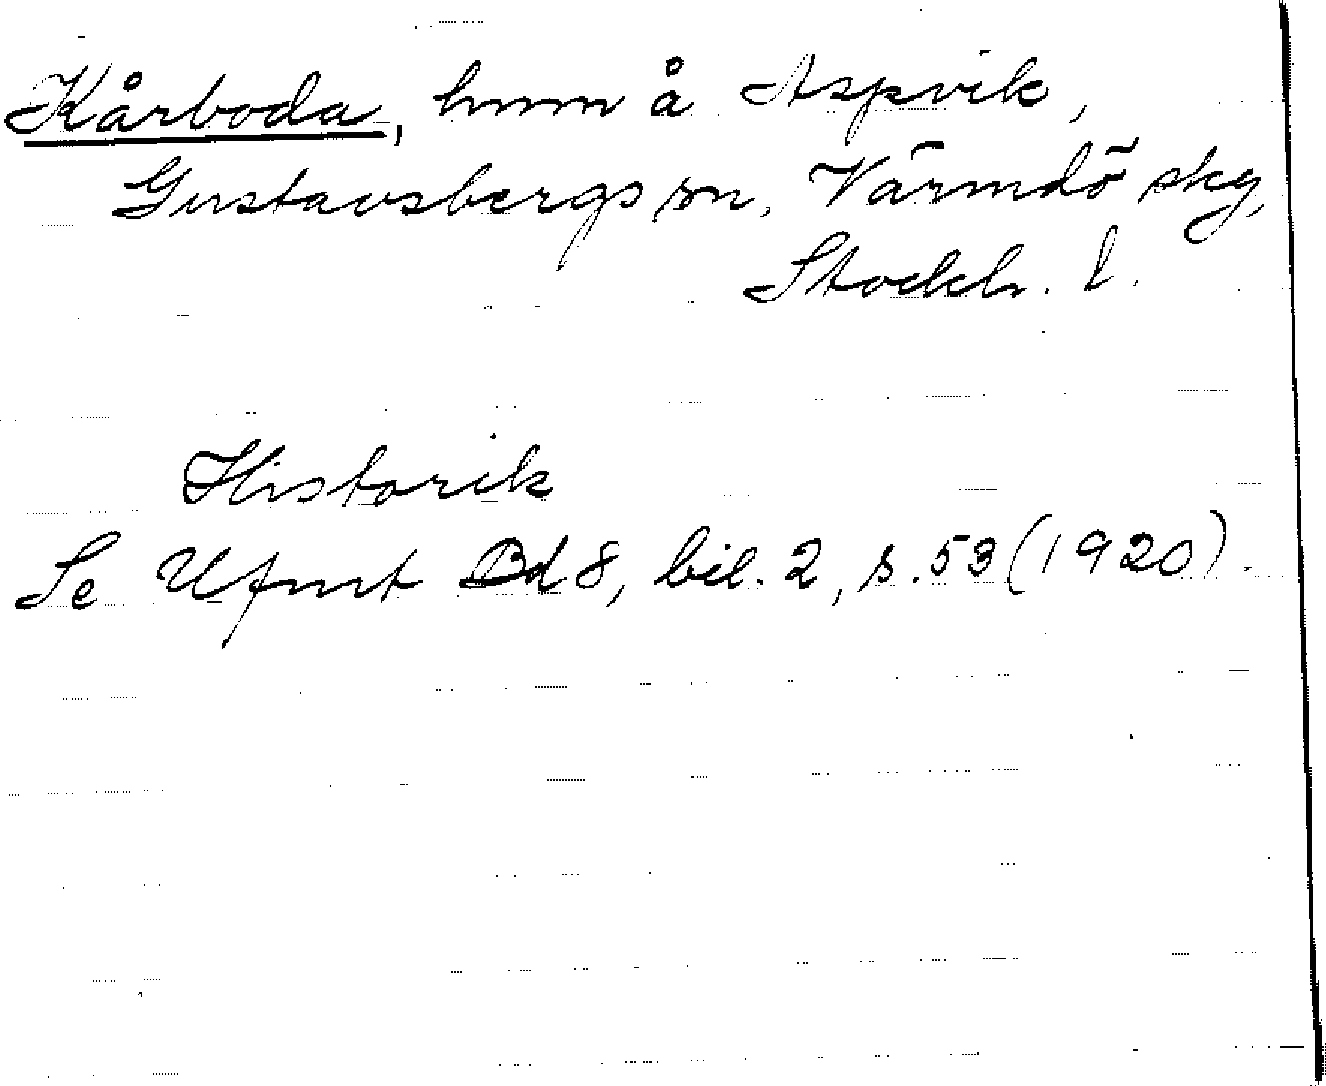 Kårboda, hmm å Aspvik,
Gustavsbergs sn, Värmdö skg,
Stockh. l.
Historik
Se Ufmt Bd 8, bil. 2, s. 53 (1920).